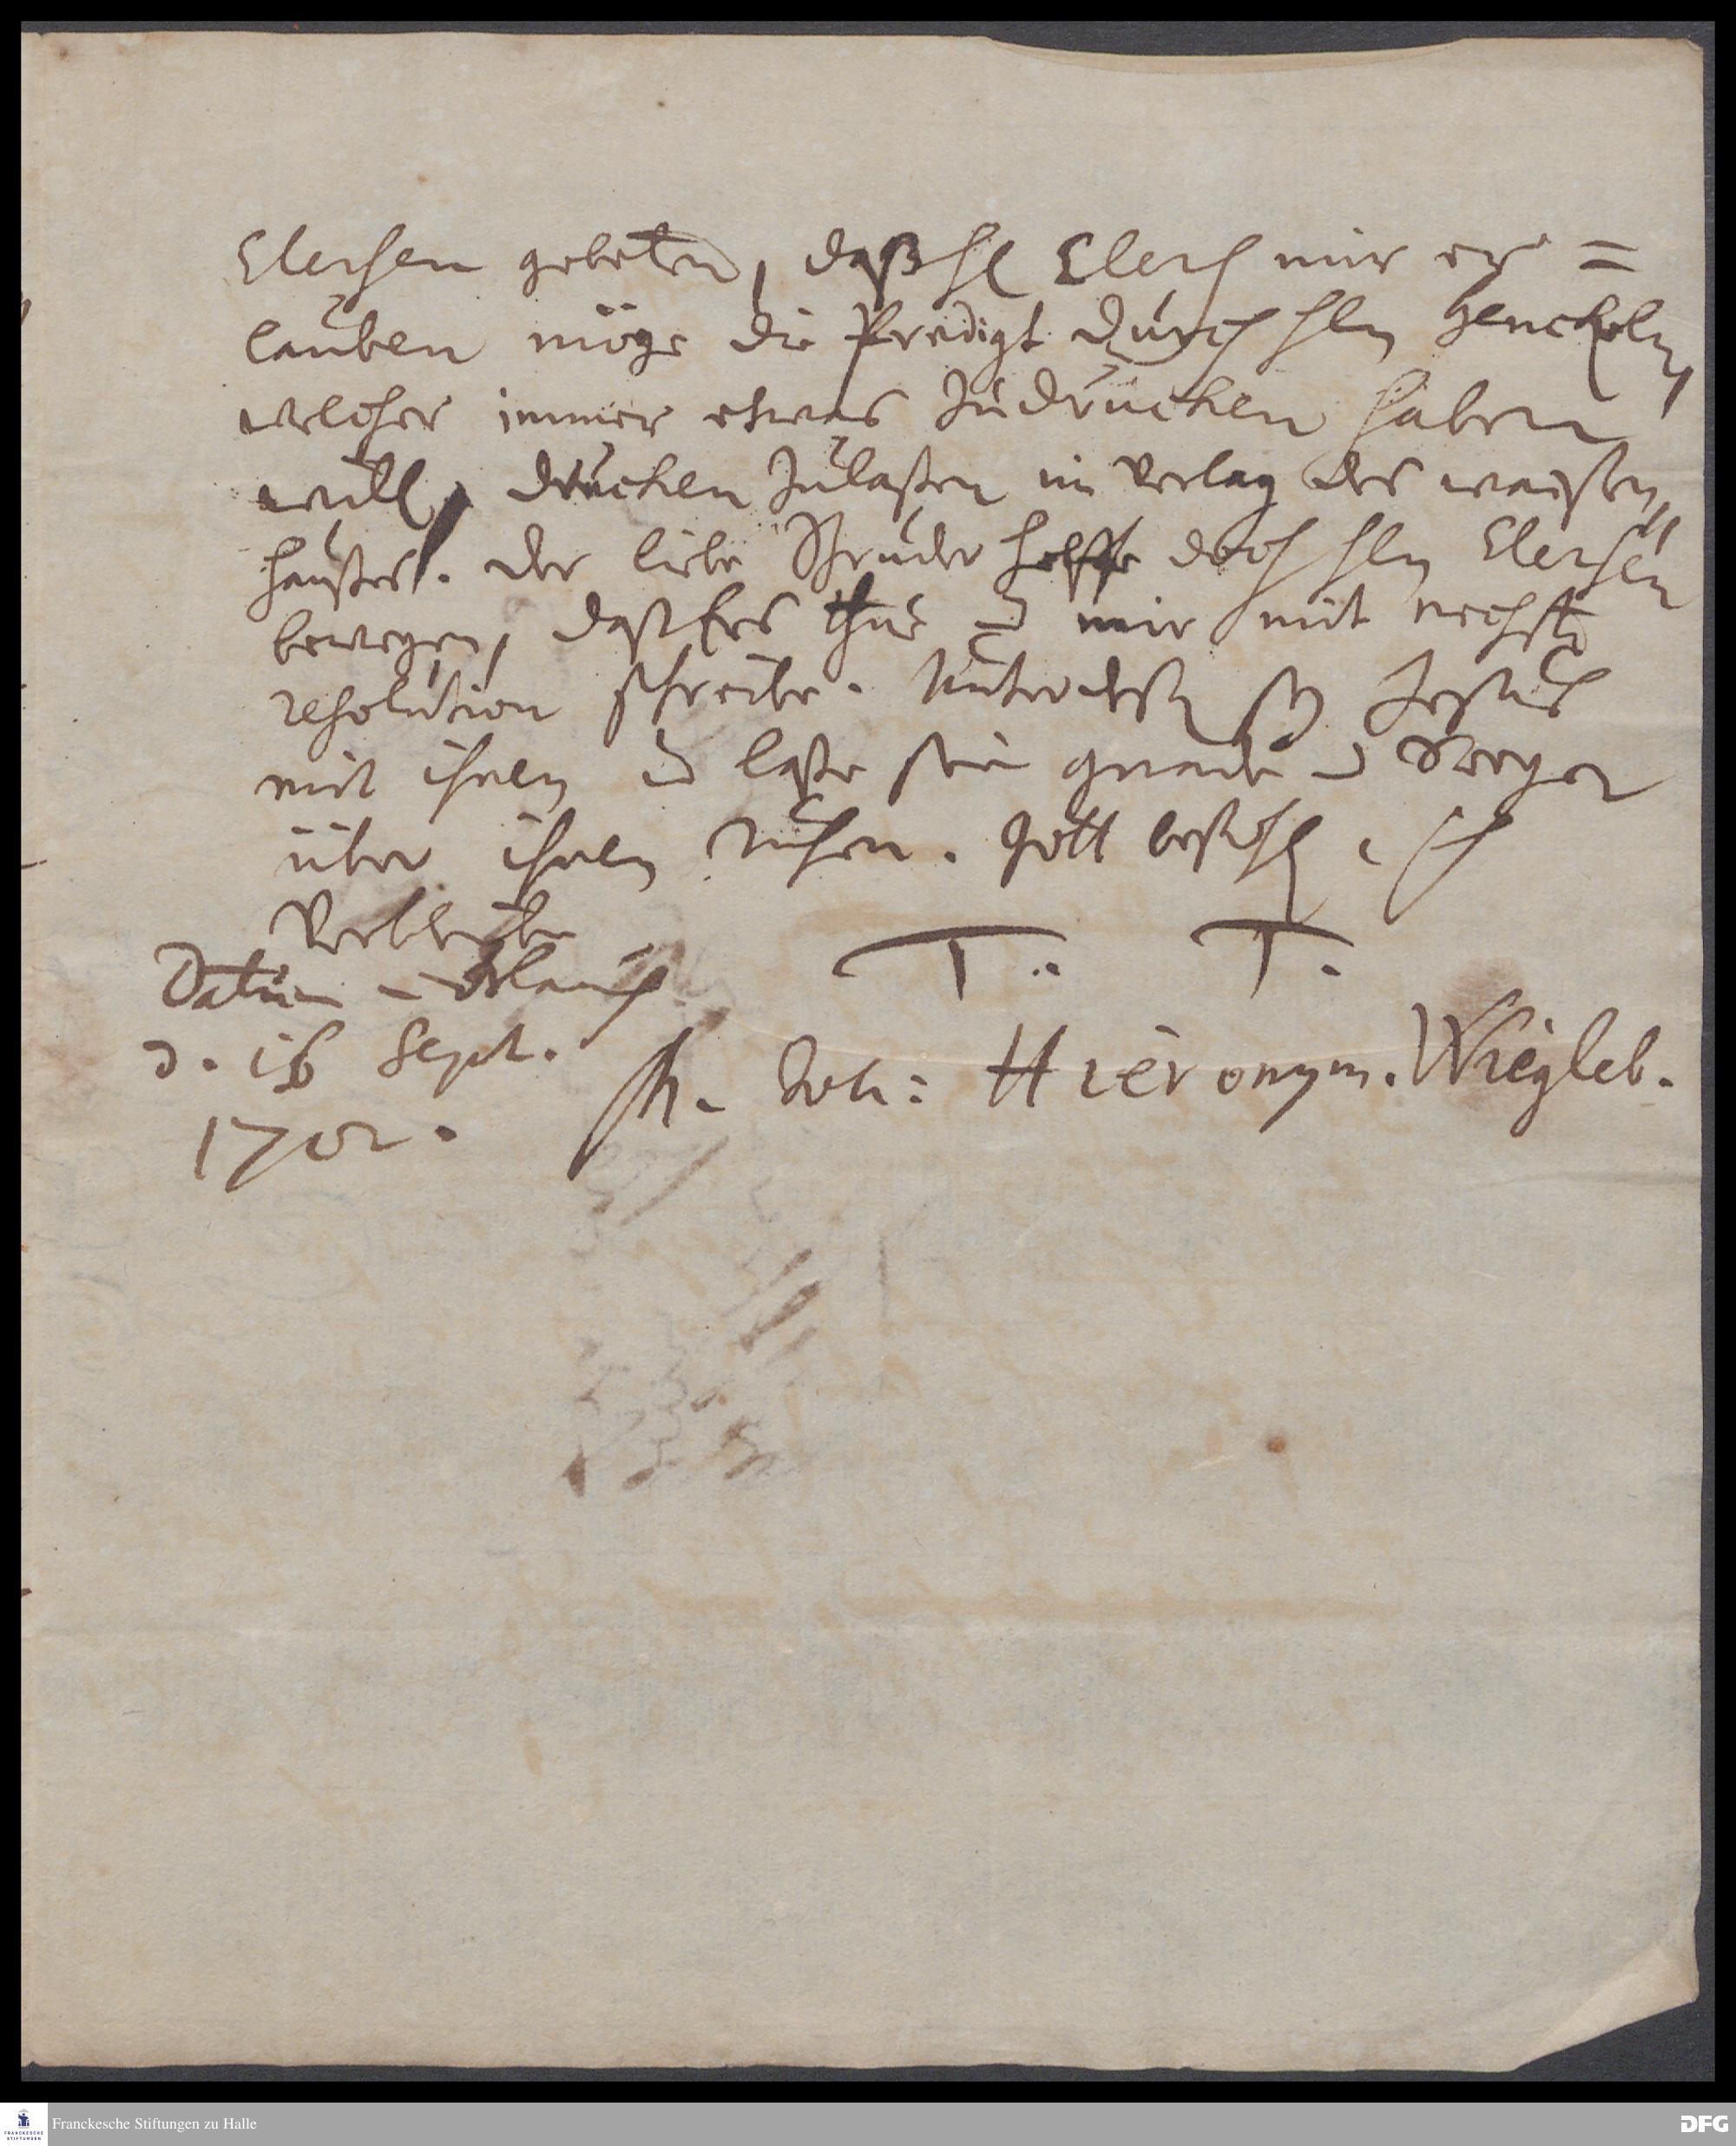 Elersen gebeten, daß H Elers mir er=
lauben möge die Predigt durch Hln Henckeln,
welcher immer etwas zudrucken haben
will, drucken zulaßen im Verlag des waisen
haußes. Der liebe Bruder helffe doch Hln Elersen
bewegen, daß Ers thue u mir mit nechste
resolution schreibe. Unterdeß sey Jesus
mit ihnen u laße seine gnade u Seegen
über ihnen ruhen. Gott befohl ich
Verbleibe
Datum Glauch
T. T.
d. 16 Sept.
M. Joh: Hieronym. Wiegleb.
1702.
Franckesche Stiftungen zu Halle
DFG